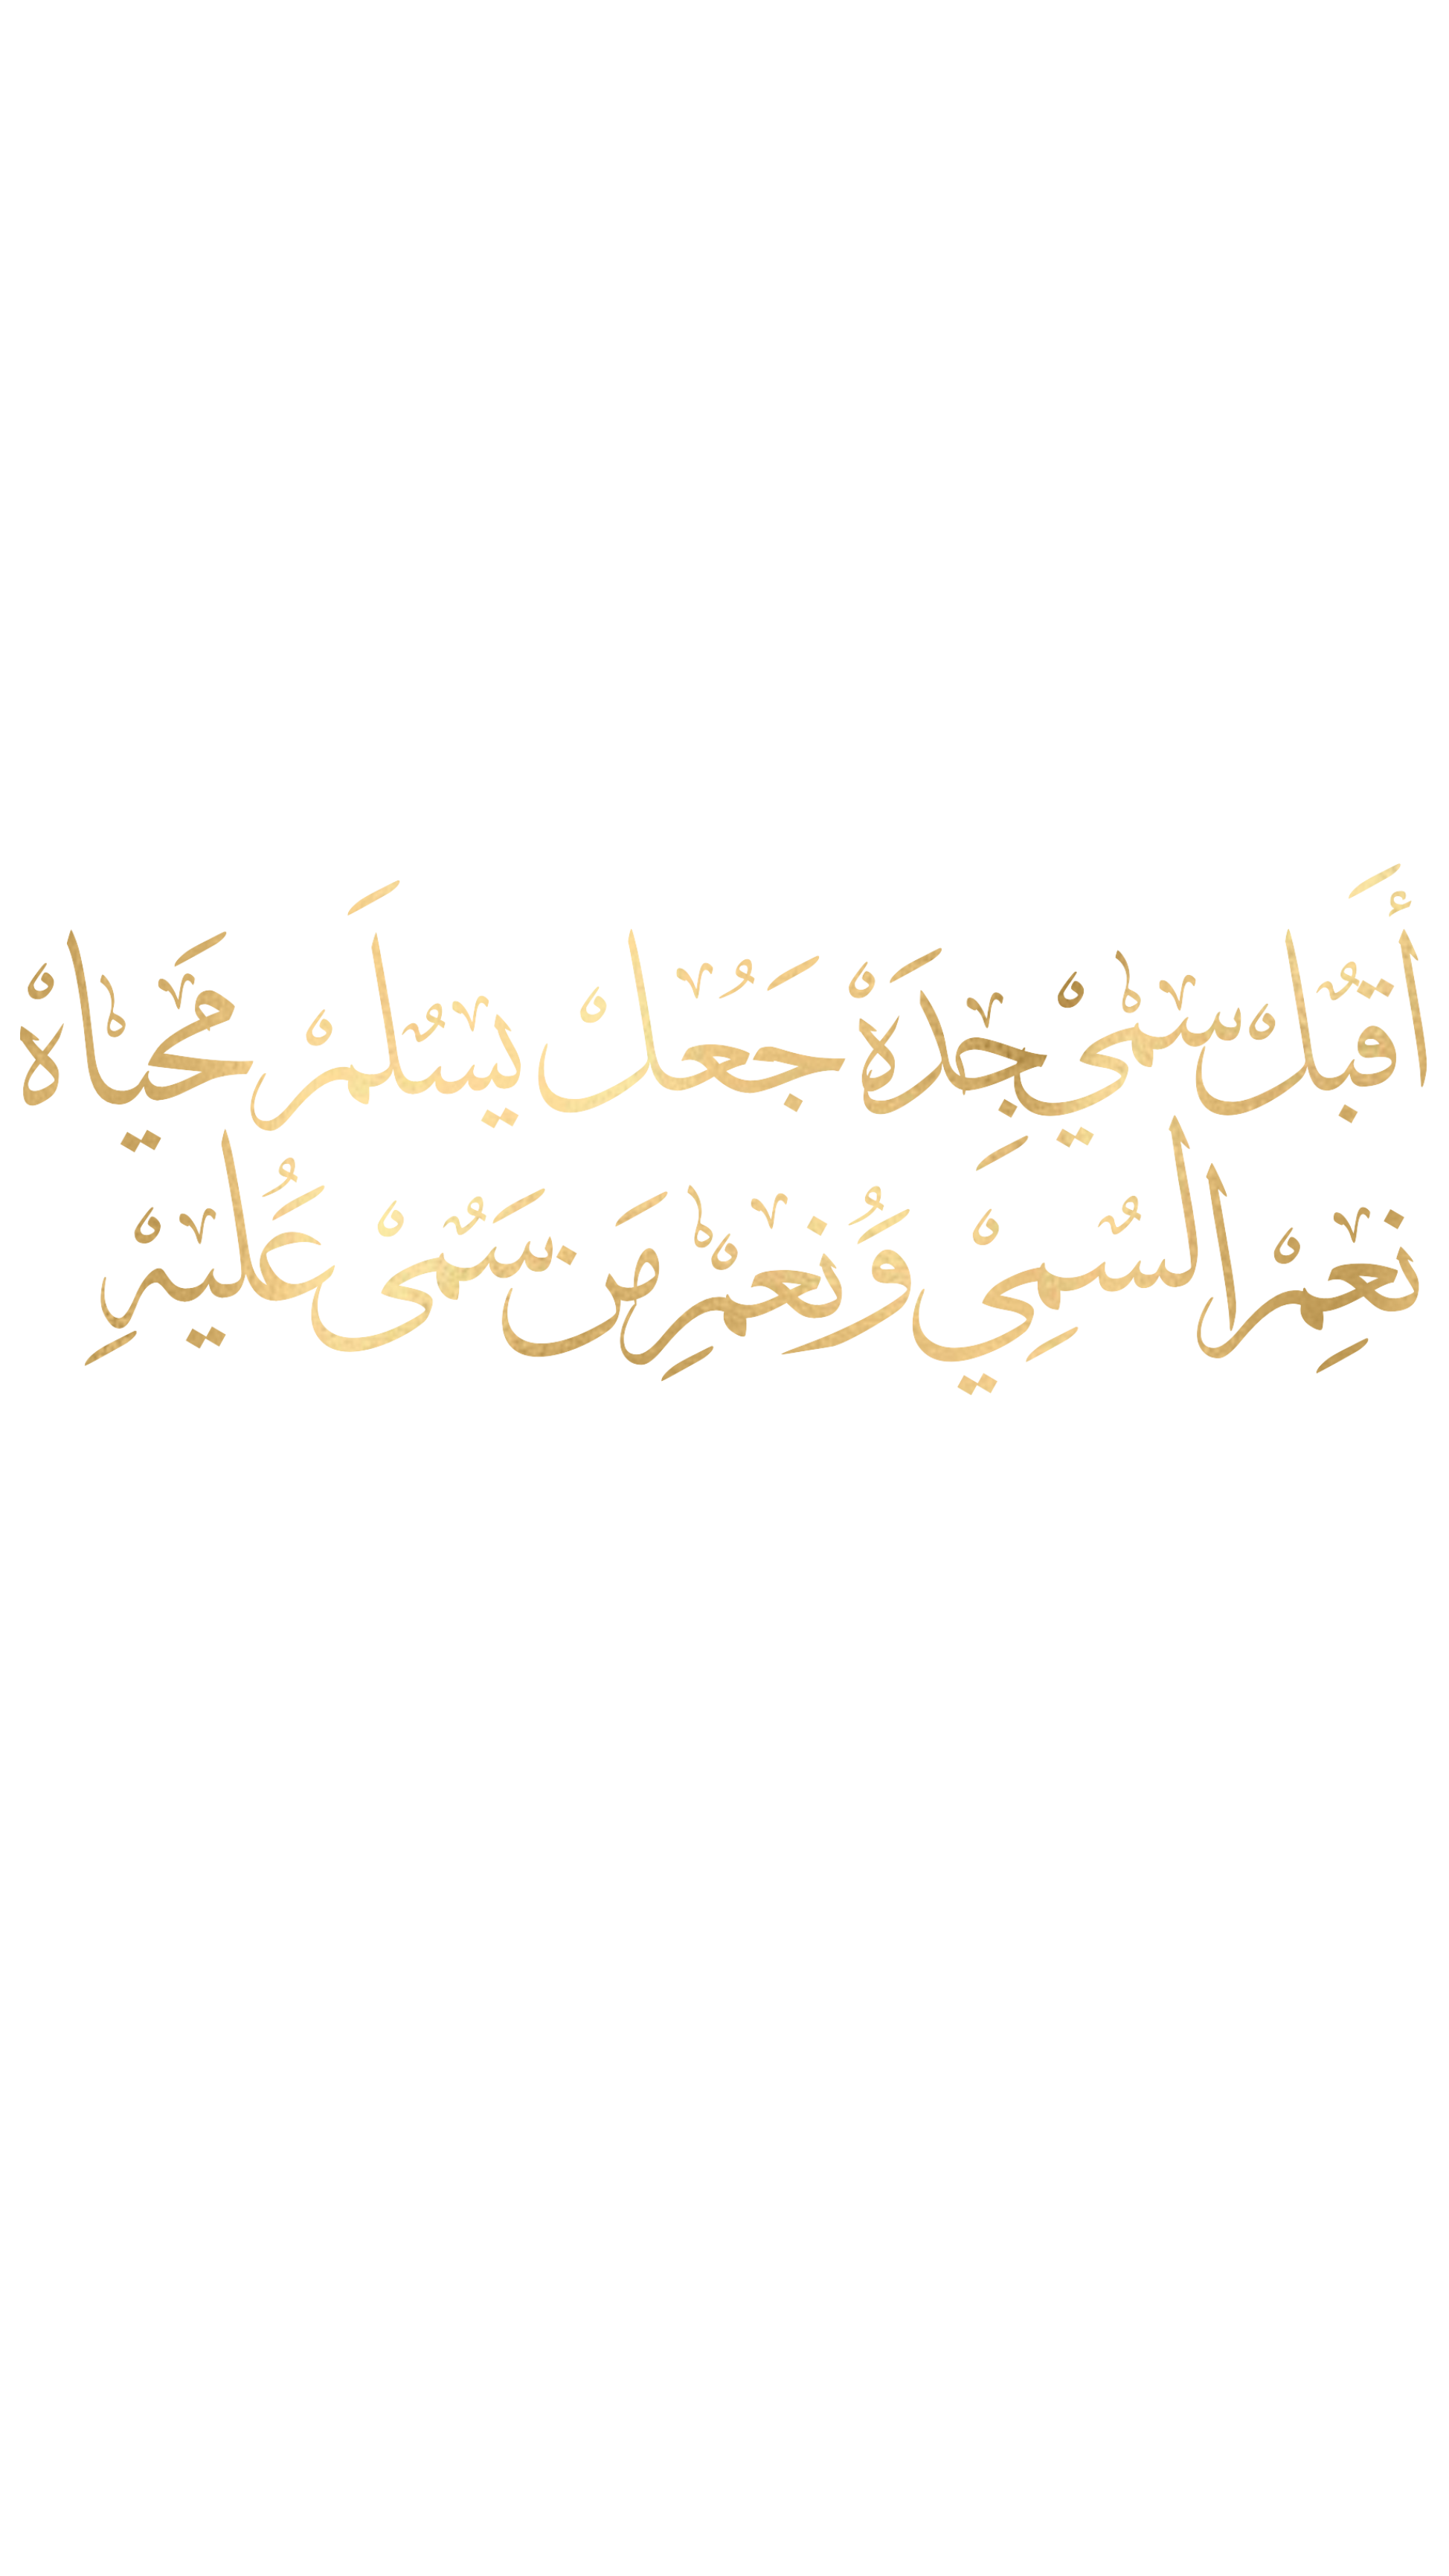 أَقبل سمي جدَه جَعل يسلَم محَياه
نعِم السمِي وَنعمِ من سَمى عَليهِ